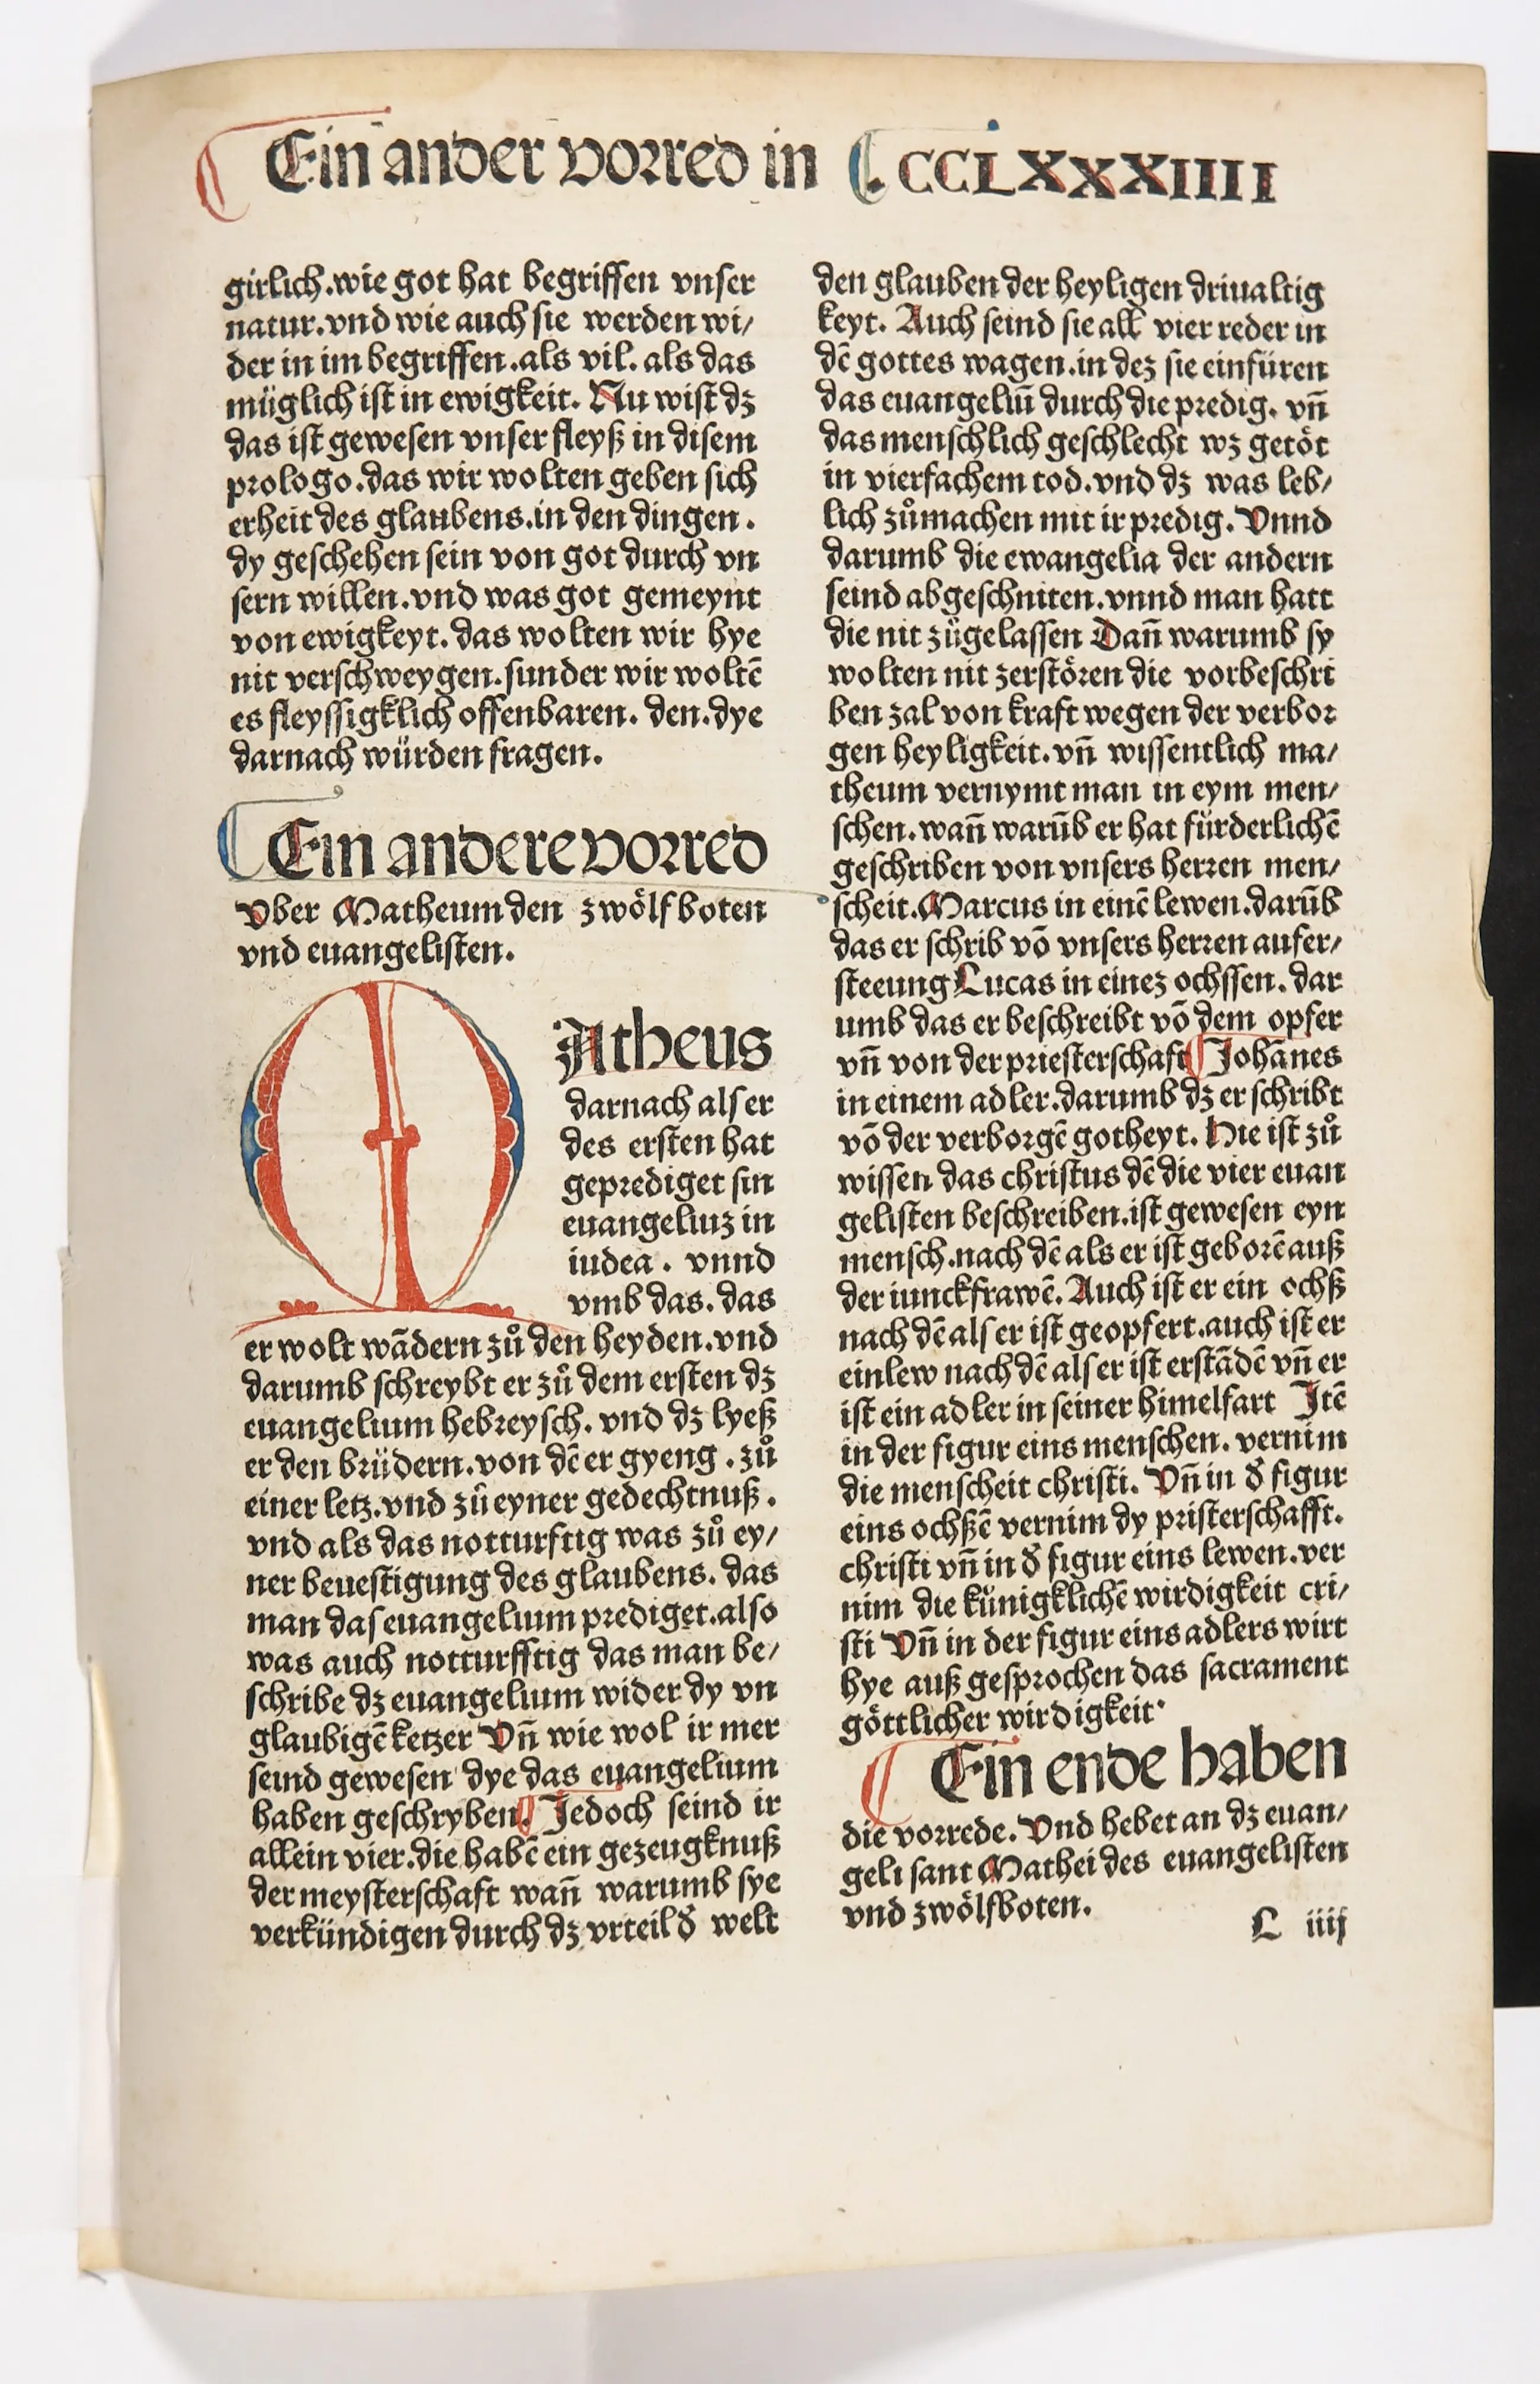 Ein ander vorred in
CCLXXXXIIII
girlich.wie got hat begriffen vnser
natur.vnd wie auch sie werden wi/
der in im begriffen.als vil. als das
müglich ist in ewigkeit. Nu wist dz
das ist gewesen vnser fleyß in disem
prologo.das wir wolten geben sich
erheit des glaubens.in den dingen.
dy geschehen sein von got durch vn
sern willen.vnd was got gemeynt
von ewigkeyt.das wolten wir hye
nit verschweygen.sunder wir woltē
es fleyssigklich offenbaren. den.dye
darnach würden fragen.
Ein andere vorred
Vber Matheum den zwölf boten
vnd euangelisten.
MAtheus
darnach als er
des ersten hat
geprediget sin
euangeliuz in
iudea. vnnd
vmb das. das
er wolt wādern zů den heyden.vnd
darumb schreybt er zů dem ersten dz
euangelium hebreysch. vnd dz lyeß
er den brüdern.von dē er gyeng. zů
einer letz.vnd zů eyner gedechtnuß.
vnd als das notturftig was zů ey/
ner beuestigung des glaubens. das
man das euangelium prediget.also
was auch notturfftig das man be/
schribe dz euangelium wider dy vn
glaubigē ketzer Vn̄ wie wol ir mer
seind gewesen dye das euangelium
haben geschryben. Jedoch seind ir
allein vier.die habē ein gezeugknuß
der meysterschaft wan̄ warumb sye
verkündigen durch dz vrteil d̄ welt
den glauben der heyligen driualtig
keyt. Auch seind sie all vier reder in
dē gottes wagen.in dez sie einfüren
das euangeliū durch die predig. vn̄
das menschlich geschlecht wz getöt
in vierfachem tod.vnd dz was leb/
lich zůmachen mit ir predig. Vnnd
darumb die ewangelia der andern
seind abgeschniten.vnnd man hatt
die nit zůgelassen Dan̄ warumb sy
wolten nit zerstören die vorbeschri
ben zal von kraft wegen der verbor
gen heyligkeit.vn̄ wissentlich ma/
theum vernymt man in eym men/
schen.wan̄ warūb er hat fürderlichē
geschriben von vnsers herren men/
scheit.Marcus in einē lewen.darūb
das er schrib vō vnsers herren aufer/
steeung Lucas in einez ochssen. dar
umb das er beschreibt vō dem opfer
vn̄ von der priesterschaft Johānes
in einem adler.darumb dz er schribt
vō der verborgē gotheyt. Hie ist zů
wissen das christus dē die vier euan
gelisten beschreiben.ist gewesen eyn
mensch.nach dē als er ist geborē auß
der iunckfrawē. Auch ist er ein ochß
nach dē als er ist geopfert.auch ist er
ein lew nach dē als er ist erstādē vn̄ er
ist ein adler in seiner himelfart Jtē
in der figur eins menschen. vernim
die menscheit christi. Vn̄ in d̄ figur
eins ochßē vernim dy pristerschafft.
christi vn̄ in d̄ figur eins lewen.ver
nim die künigklichē wirdigkeit cri/
sti Vn̄ in der figur eins adlers wirt
hye auß gesprochen das sacrament
göttlicher wirdigkeit.
Ein ende haben
die vorrede. Vnd hebet an dz euan/
geli sant Mathei des euangelisten
vnd zwölfboten.
L iiij